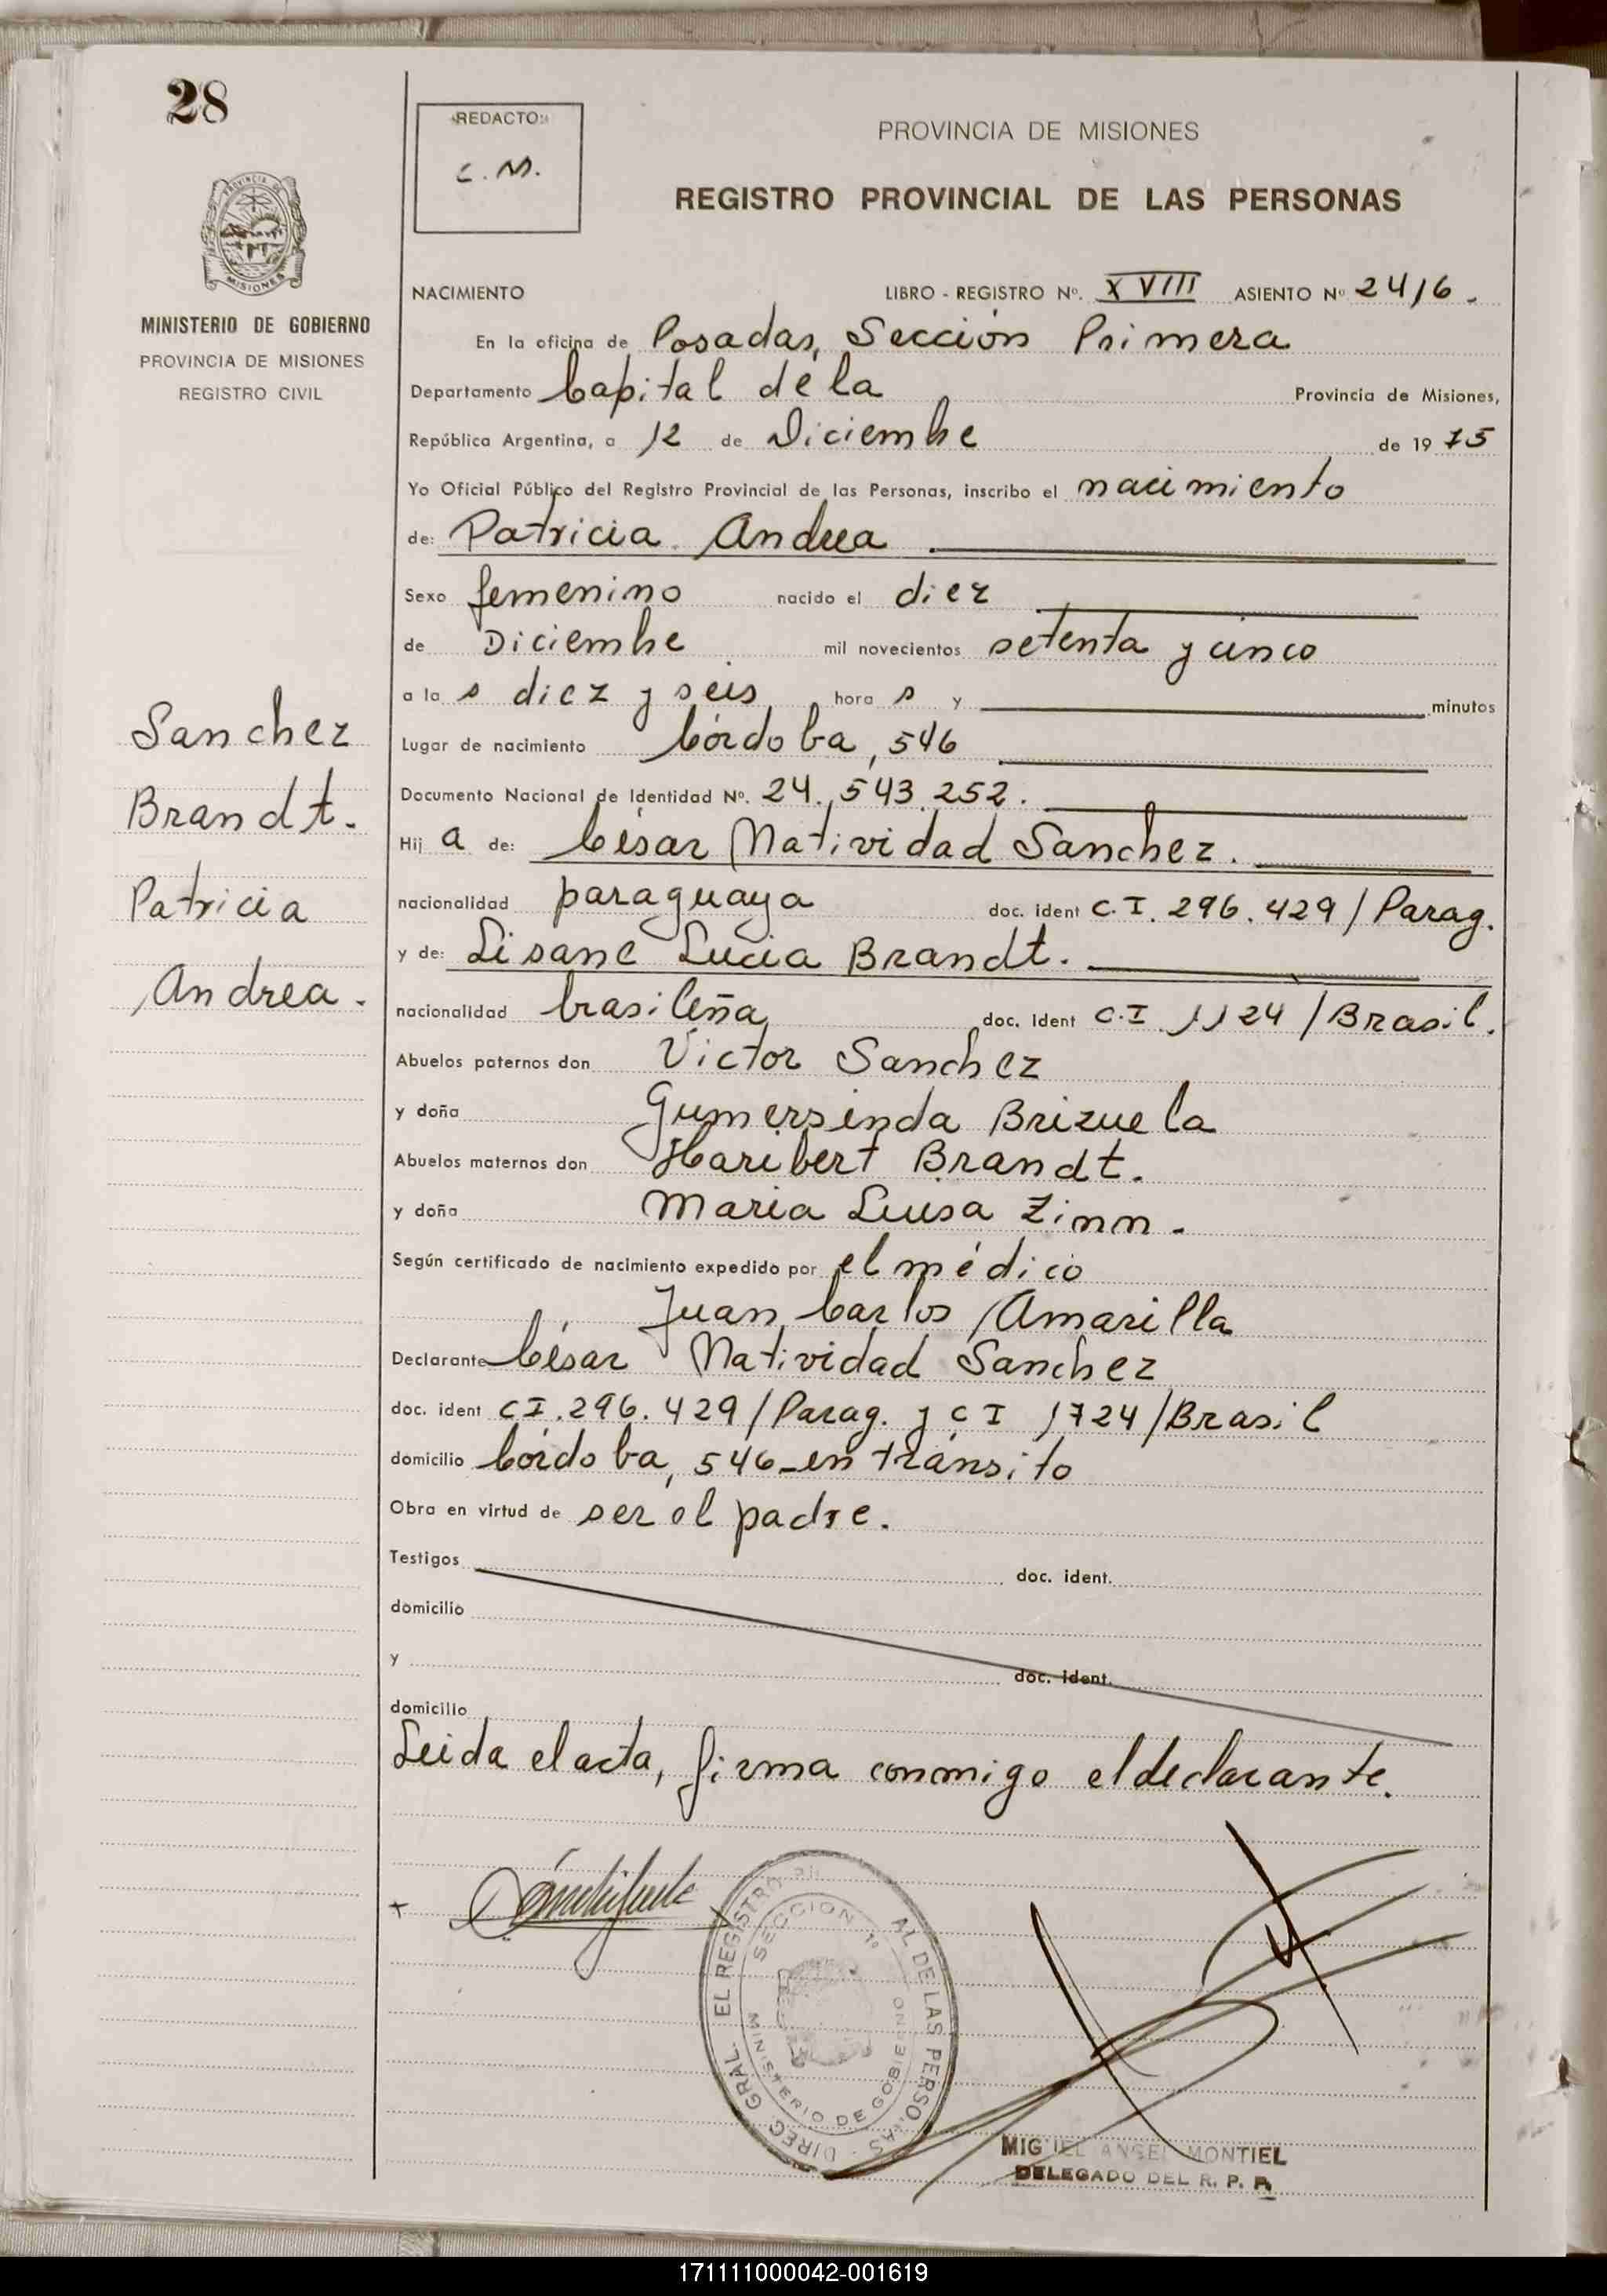 28
REDACTO:
C. M.
PROVINCIA DE MISIONES
REGISTRO PROVINCIAL DE LAS PERSONAS
MISIONES
MINISTERIO DE GOBIERNO
PROVINCIA DE MISIONES
REGISTRO CIVIL
NACIMIENTO LIBRO - REGISTRO Nº. XVIII ASIENTO Nº 2416.
En la oficina de Posadas, Sección Primera
Departamento Capital de la Provincia de Misiones,
República Argentina, a 12 de Diciembre de 19 75
Yo Oficial Público del Registro Provincial de las Personas, inscribo el nacimiento
de: Patricia Andrea
Sexo femenino nacido el diez
de Diciembre mil novecientos setenta y cinco
a la s diez y seis hora s y minutos
Lugar de nacimiento Córdoba, 546
Documento Nacional de Identidad Nº. 24.543.252.
Hij a de: César Natividad Sanchez.
nacionalidad paraguaya doc. ident C.I. 296.429/Parag.
y de: Lisane Lucia Brandt.
nacionalidad brasileña doc. Ident C.I. 1124/Brasil.
Abuelos paternos don Victor Sanchez
y doña Gumersinda Brizuela
Abuelos maternos don Haribert Brandt.
y doña Maria Luisa Zinn.
Según certificado de nacimiento expedido por el médico
Juan Carlos Amarilla
Declarante César Natividad Sanchez
doc. ident CI.296.429/Parag. y CI 1724/Brasil
domicilio Córdoba, 546 en tránsito
Obra en virtud de ser el padre.
Testigos doc. ident.
domicilio
y doc. ident.
domicilio
Leida el acta, firma conmigo el declarante.
Sanchez
Brandt.
Patricia
Andrea.
SECCION 1ª
MINISTERIO DE GOBIERNO
MIGUEL ANGEL MONTIEL
DELEGADO DEL R. P. P.
171111000042-001619